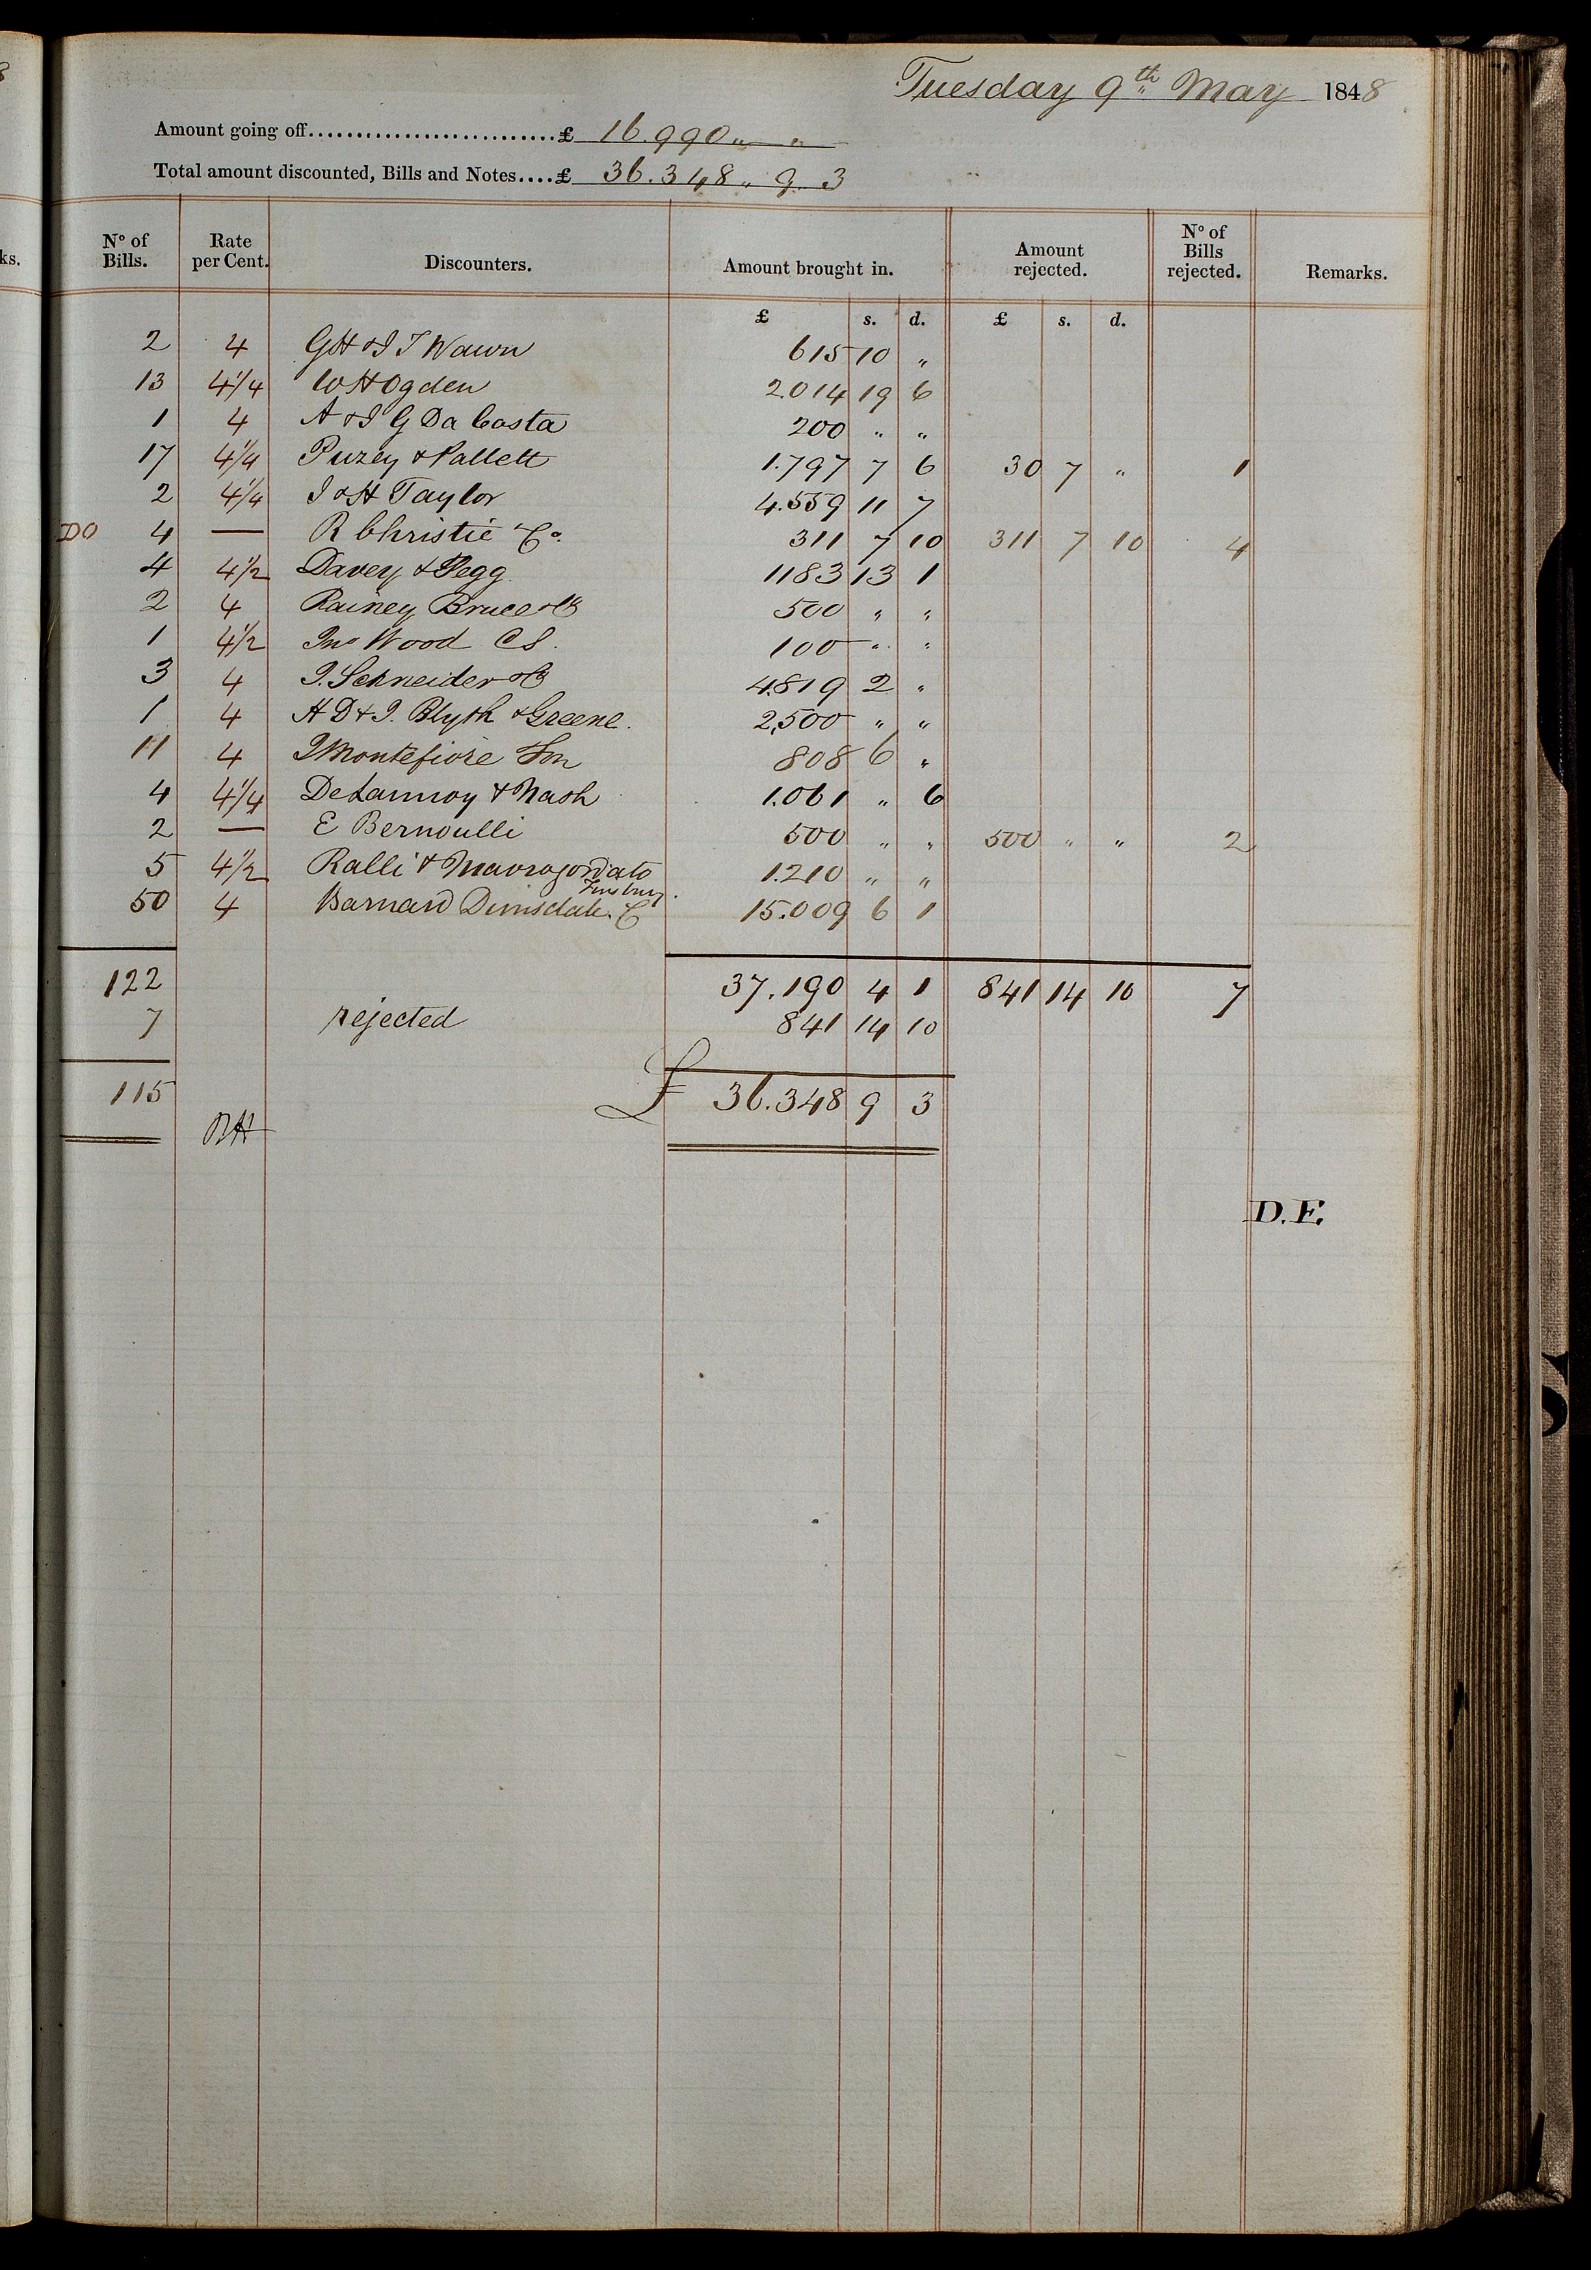 8
ks.
Tuesday 9th May 1848
Amount going off..........................£ 16.990 „ „
Total amount discounted, Bills and Notes....£ 36.348 „ 9 „ 3
No of Bills. Rate per Cent. Discounters. Amount brought in. Amount rejected. No of Bills rejected. Remarks.
£ s. d. £ s. d.
2 4 GH & J T Wawn 615 10 „
13 4 1/4 W H Ogden 2.014 19 6
1 4 A & J G Da Costa 200 „ „
17 4 1/4 Puzey & Pallett 1.797 7 6 30 7 „ 1
2 4 1/4 J & H Taylor 4.559 11 7
DO 4 — R Christie & Co. 311 7 10 311 7 10 4
4 4 1/2 Davey & Pegg 1183 13 1
2 4 Rainey Bruce & Co 500 „ „
1 4 1/2 Jno Wood C S. 100 „ „
3 4 J. Schneider & Co 4.819 2 „
1 4 H D & J. Blyth & Greene. 2,500 „ „
11 4 J Montefiore Son 808 6 „
4 4 1/4 DeLannoy & Nash 1.061 „ 6
2 — E Bernoulli 500 „ „ 500 „ „ 2
5 4 1/2 Ralli & Mavrogordato 1.210 „ „
Finsbury
50 4 Barnard Dimsdale & C 15.009 6 1
122 37.190 4 1 841 14 10 7
7 rejected 841 14 10
115 £ 36.348 9 3
RH
D.F.